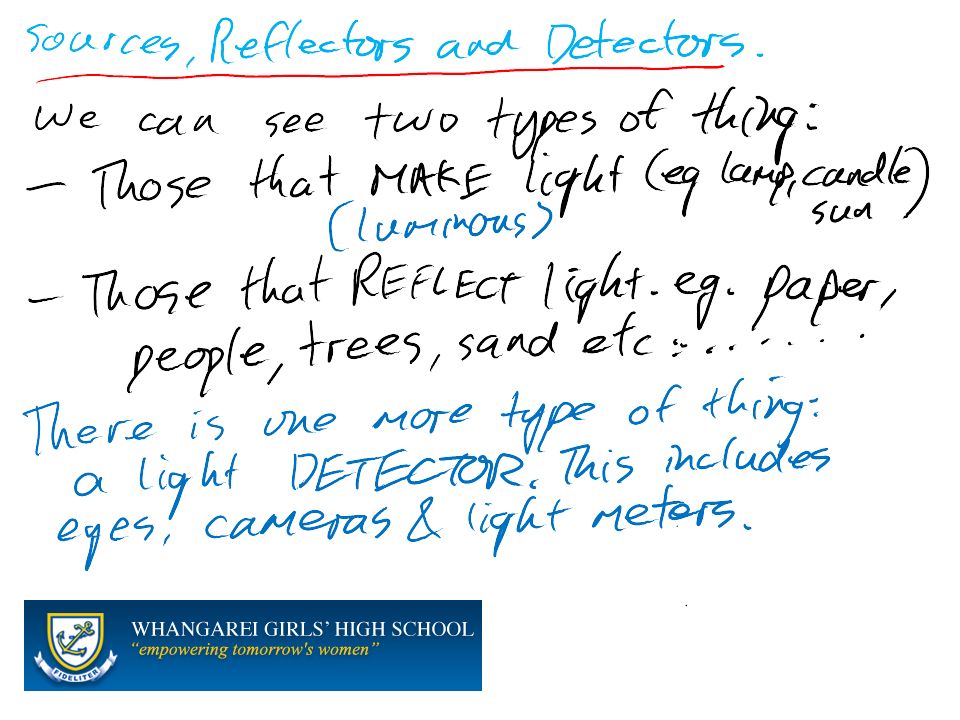 Sources, Reflectors and Detectors.
We can see two types of thing:
– Those that MAKE light (eg lamp, candle
sun)
(luminous)
– Those that REFLECT light. eg. paper,
people, trees, sand etc..........
There is one more type of thing:
a light DETECTOR. This includes
eyes, cameras & light meters.
WHANGAREI GIRLS' HIGH SCHOOL
"empowering tomorrow's women"
FIDELITER